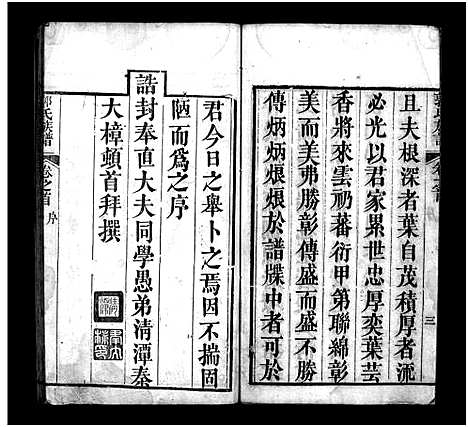 且夫根深者葉自茂積厚者流
必光以君家累世忠厚奕葉芸
香將來雲礽蕃衍甲第聯綿彰
美而美弗勝彰傳盛而盛不勝
傳炳炳烺烺於譜牒中者可於
三
君今日之舉卜之焉因不揣固
陋而為之序
誥封奉直大夫同學愚弟清潭秦
大樟頓首拜撰
郭氏族譜
卷之首
序